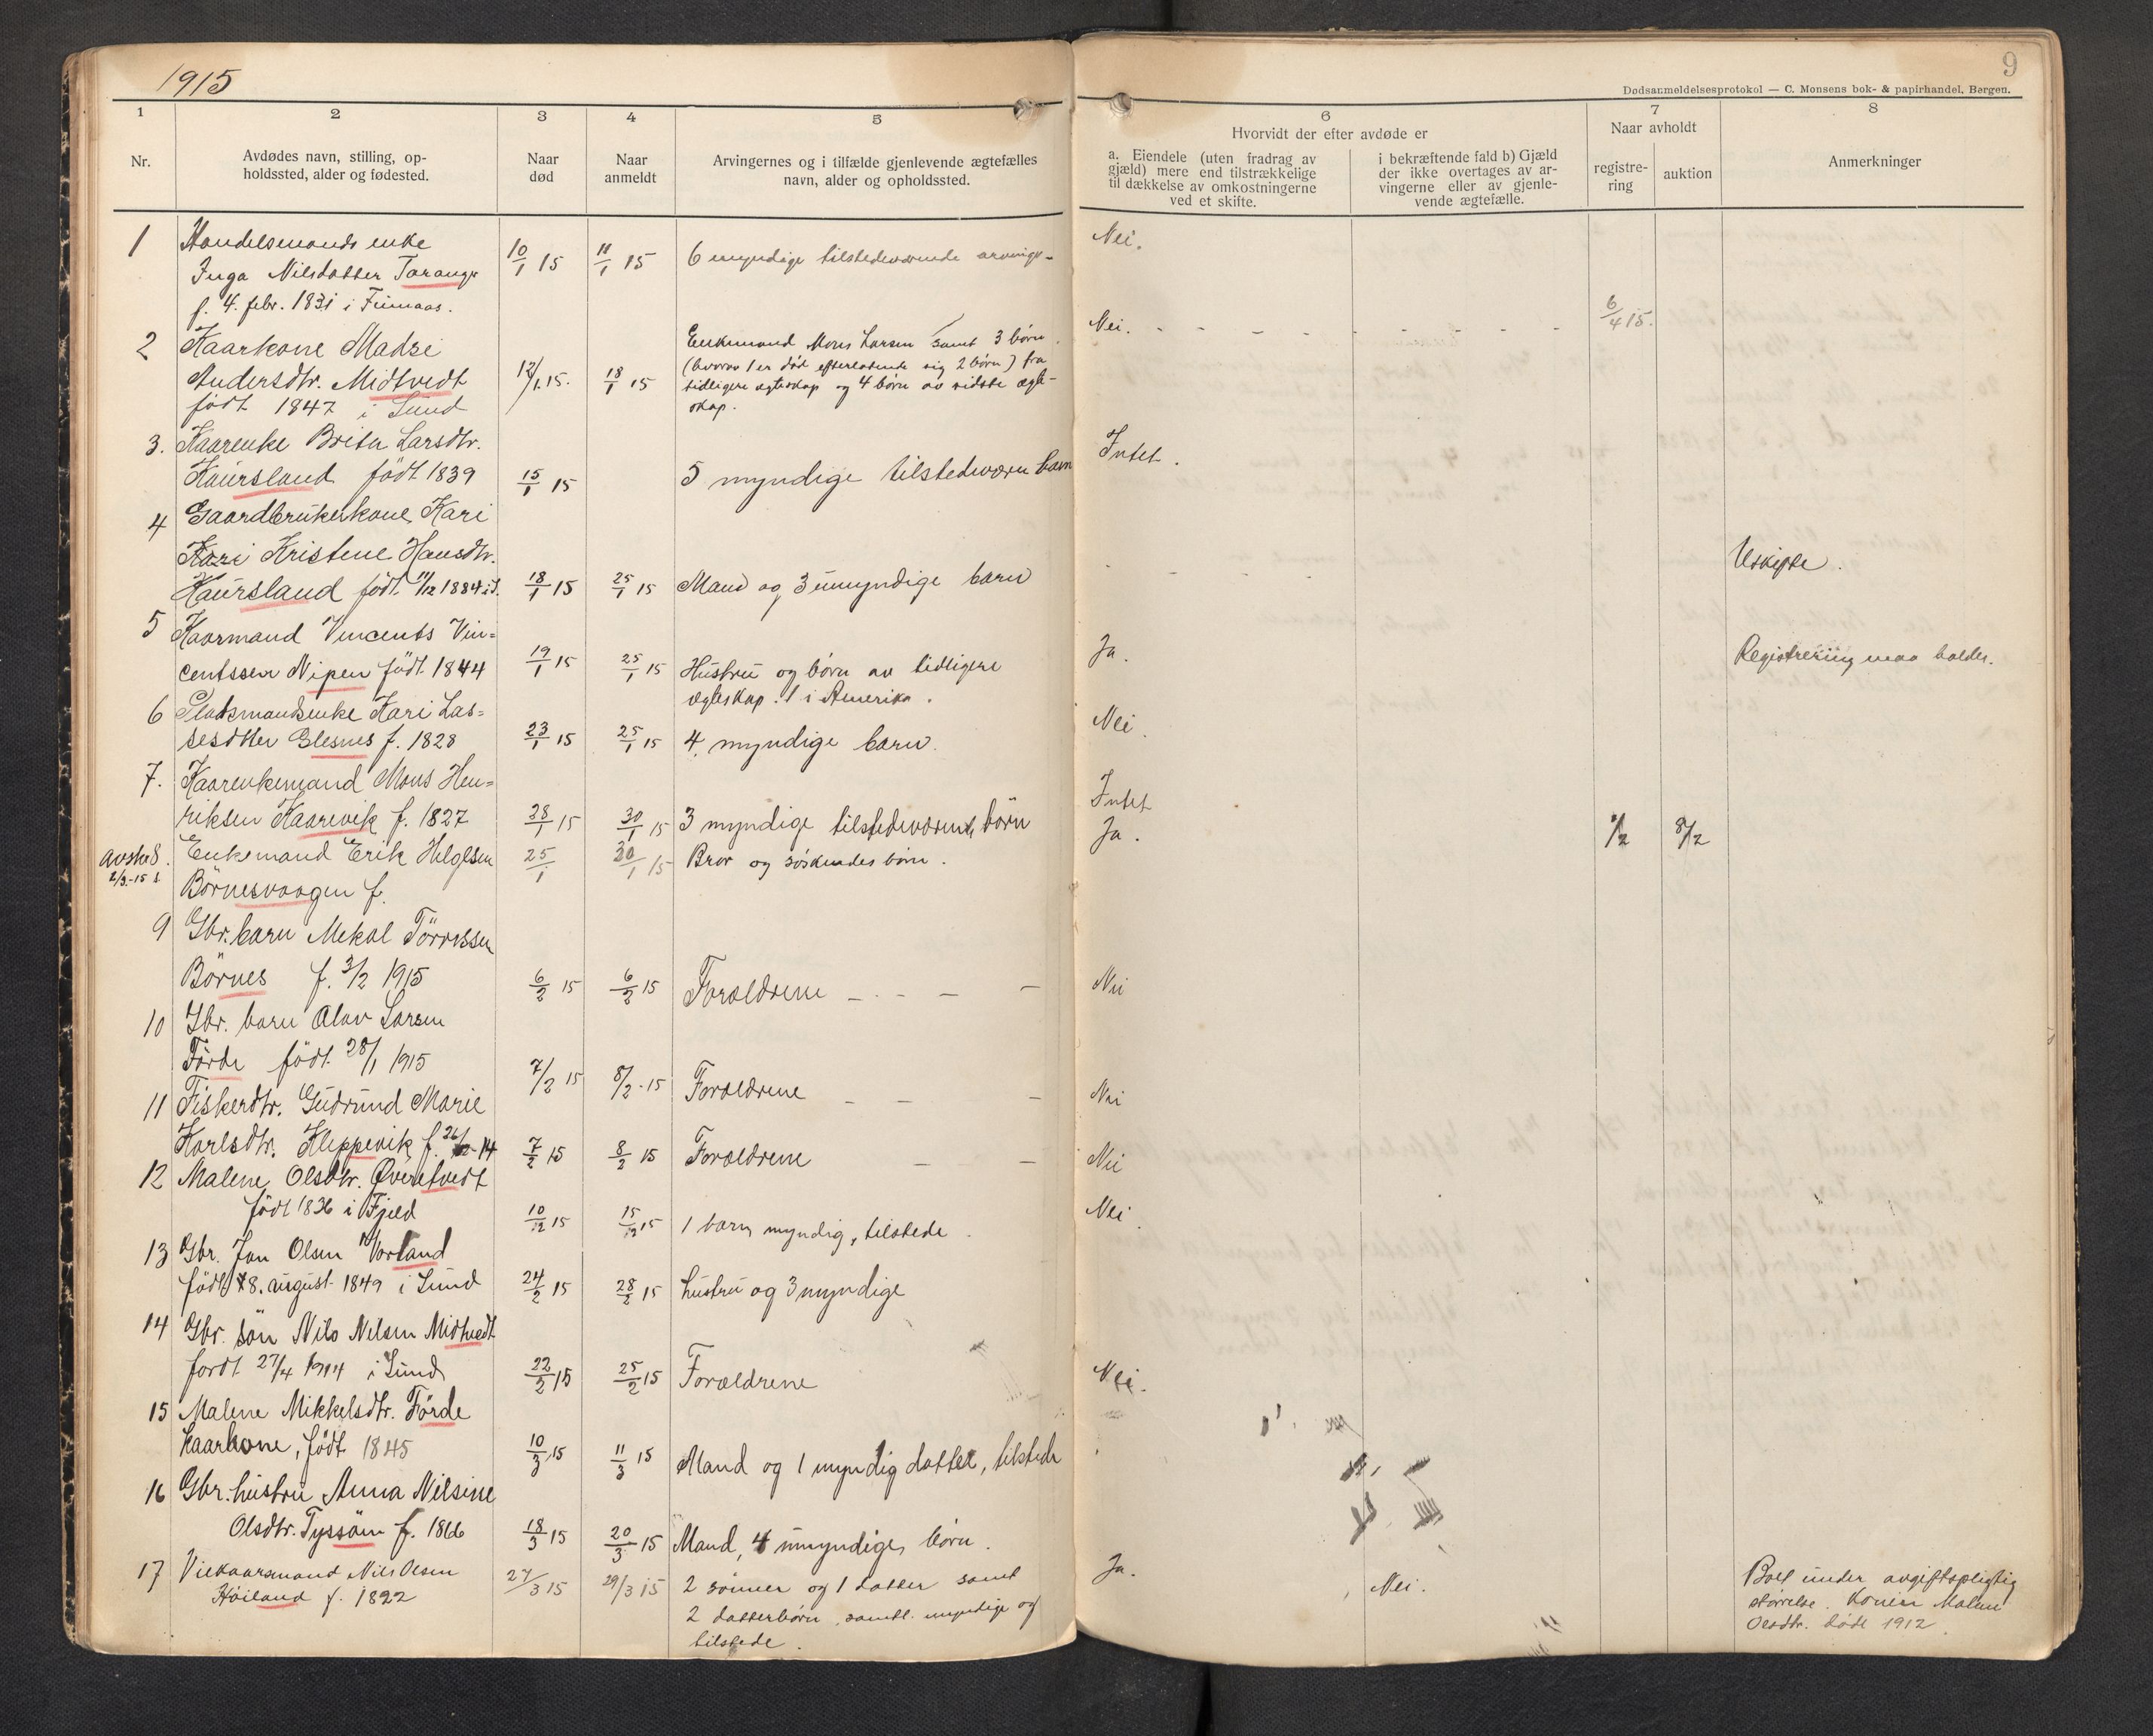 1915
9
Dødsanmeldelsesprotokol — C. Monsens bok- & papirhandel, Bergen.
1 2 3 4 5 6 7 8
Nr.
Avdødes navn, stilling, op-
holdssted, alder og fødested.
Naar
død
Naar
anmeldt
Arvingernes og i tilfælde gjenlevende ægtefælles
navn, alder og opholdssted.
Hvorvidt der efter avdøde er
a. Eiendele (uten fradrag av
gjæld) mere end tilstrækkelige
til dækkelse av omkostningerne
ved et skifte.
i bekræftende fald b) Gjæld
der ikke overtages av ar-
vingerne eller av gjenle-
vende ægtefælle.
Naar avholdt
registre-
ring
auktion
Anmerkninger
1 Handelsmands enke
Inga Nilsdatter Taranger 10/1 15 11/1 15 6 myndige tilstedeværende arvinge- Nei.
f. 4. febr. 1831 i
2 Kaarkone Madsi
Andersdtr. Midtvedt 12/1.15. 18/1 15
født 1847 i Sund
Enkemand Mons Larsen samt 3 børn Nei. 6/4 15.
(hvorav 1 er død efterlatende sig 2 børn) fra
tidligere ægteskap og 4 børn av sidste ægte-
skap.
3. Kaarenke Brita Larsdtr.
Haursland født 1839 15/1 15 5 myndige tilstedeværn barn Intet.
4 Gaardbrukerkone Kari
Kari Kristene Hansdtr.
Haursland født 11/12 1884 i S. 18/1 15 25/1 15 Mand og 3 umyndige barn Uskifte.
5 Kaarmand Vincents Vin=
centssen Nipen født 1844 19/1 15 25/1 15 Hustru og børn av tidligere Ja. Registrering maa holdes.
ægteskap. 1 i Amerika.
6 Pladsmandsenke Kari Las=
sesdtter Glesnes f. 1828 23/1 15 25/1 15 4 myndige barn. Nei
7. Kaarenkemand Mons Hen=
riksen Kaarevik f. 1827 28/1 15 30/1 15 3 myndige tilstedeværende børn Intet
Avsked. Enkemand Erik Helgesen 25/1 30/1 15 Bror og søskendes børn. Ja. 8/2
2/3-15 Børnesvaagen f.
9 Gbr. barn Mekal Törressen
Börnes f. 3/2 1915 6/2 15 6/2 15 Foræeldrene Nei
10 Gbr. barn Olav Larsen
Förde født 28/1 1915 7/2 15 8/2-15 Forældrene Nei
11 Fiskerdtr. Gudrund Marie
Karlsdtr. Kleppevik f. 7/2 15 8/2 15 Forældrene Nei
12 Malene Olsdtr. Øvretvedt
født 1836 i Fjeld 10/2 15 15/2 15 1 barn myndig, tilstede. Nei.
13 Gbr. Jan Olsen Vorland
født 8. august 1849 i Sund 24/2 15 28/2 15 hustru og 3 myndige
14 Gbr. sön Nils Nilsen Midtvedt
fordt 27/4 1914 i Sund 22/2 15 25/2 15 Forældrene Nei.
15 Malene Mikkelsdtr. Förde
kaarkone, født 1845 10/3 15 11/3 15 Mand og 1 myndig datter, tilstede
16 Gbr. hustru Anna Nilsine
Olsdtr. Tyssöen f. 1866 18/3 15 20/3 15 Mand, 4 umyndige børn.
17 Vilkaarsmand Nils Olsen 27/3 15 29/3 15 2 sønner og 1 datter samt Ja. Nei.
Höiland f. 1822
2 datterbørn, samtl. myndige og
tilstede.
Boet under avgiftspligtig
størrelse. Konen Malene
Olsdtr. døde 1912.